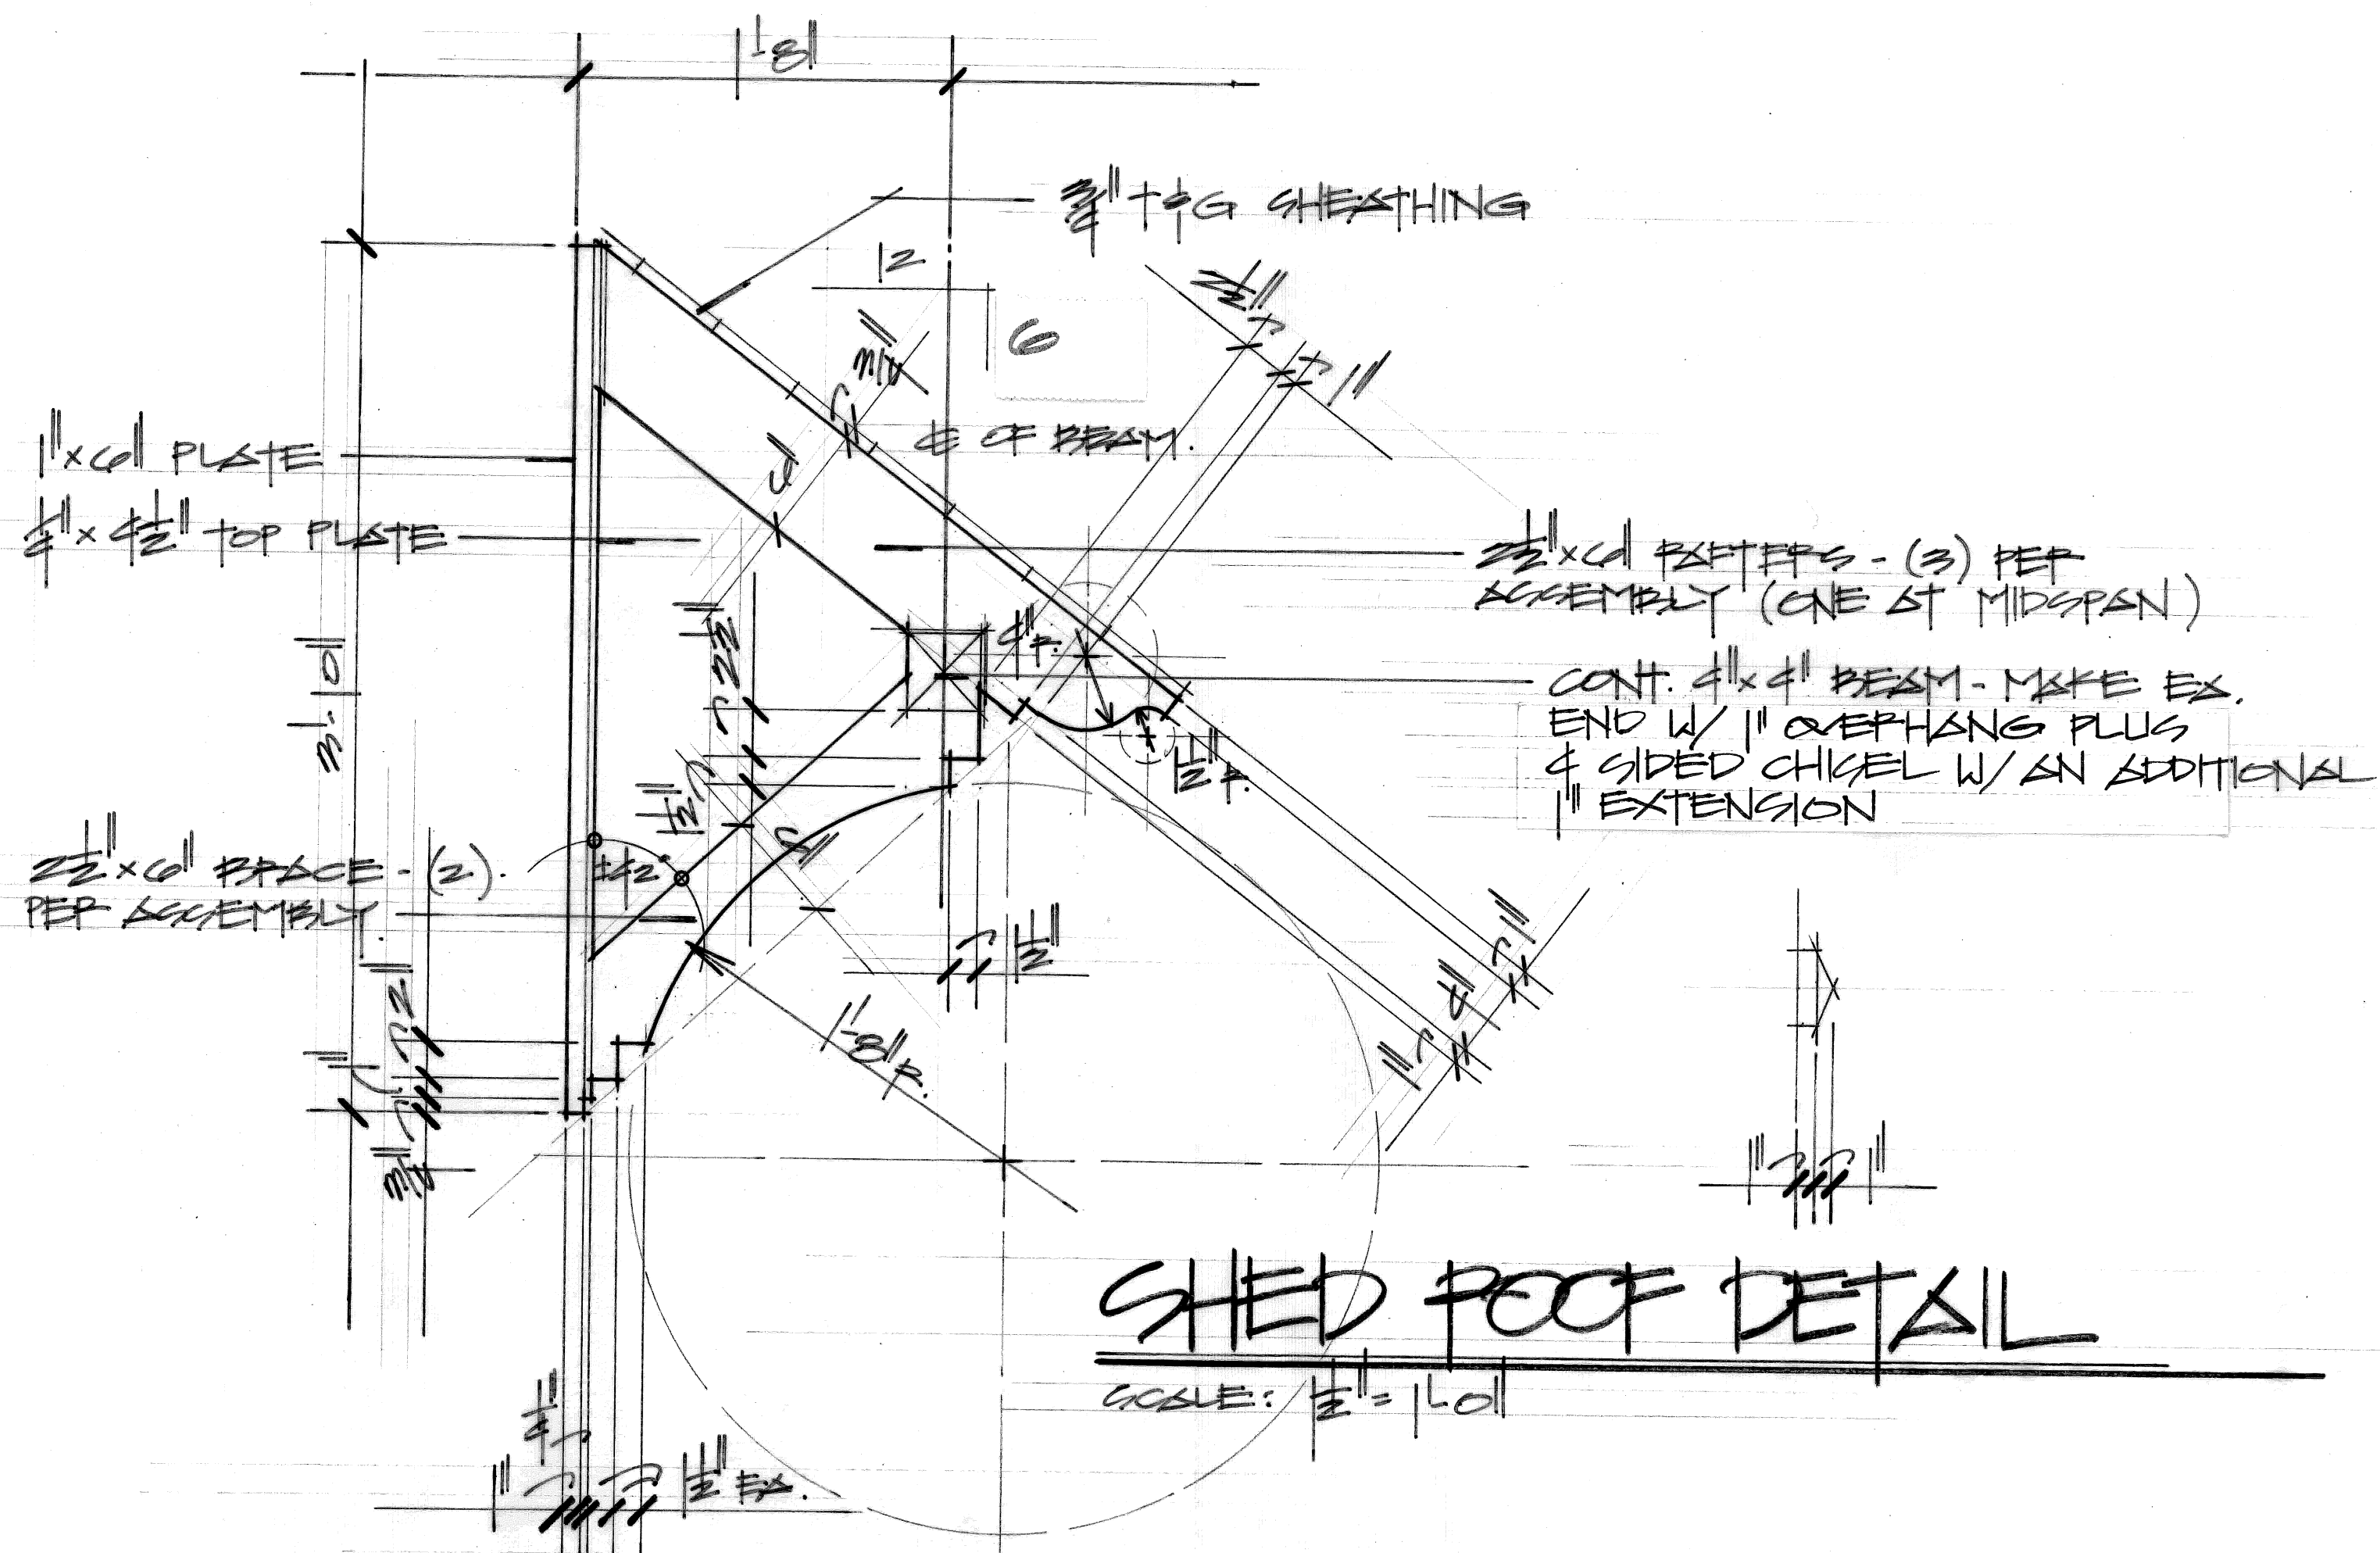 1'-8"
3/4" T&G SHEATHING
12
6
2 1/2"
1"
3/4"
6"
℄ OF BEAM.
1"x6" PLATE
1/4"x 4 1/2" TOP PLATE
2 1/2"x6" RAFTERS - (3) PER
ASSEMBLY (ONE AT MIDSPAN)
3'-0"
4" R.
CONT. 4"x4" BEAM - MAKE EA.
END W/ 1" OVERHANG PLUS
4 SIDED CHISEL W/ AN ADDITIONAL
1" EXTENSION
1 1/2" R.
1 1/2"
±42°
2 1/2"x6" BRACE - (2)
PER ASSEMBLY.
1 1/2"
1"
4"
1"
2"
1"
3/4"
1'-8" R.
1" 1"
SHED ROOF DETAIL
SCALE: 1 1/2" = 1'-0"
1/4"
1" 1 1/2" EA.